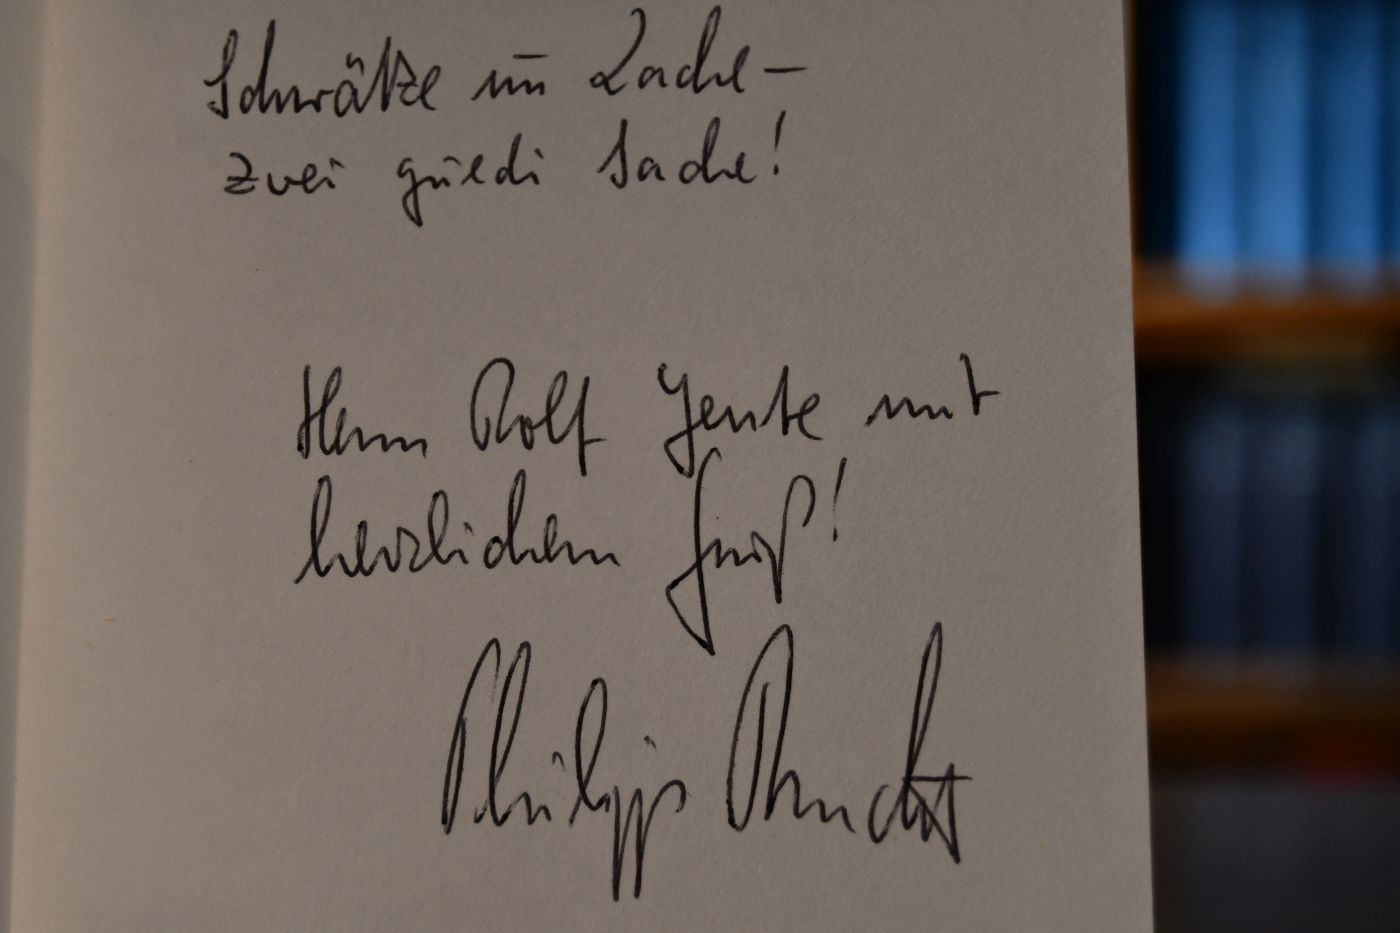 Schwätze un Lache –
zwei güedi Sache!
Herrn Rolf Jente mit
herzlichem Gruß!
Philipp Brucker